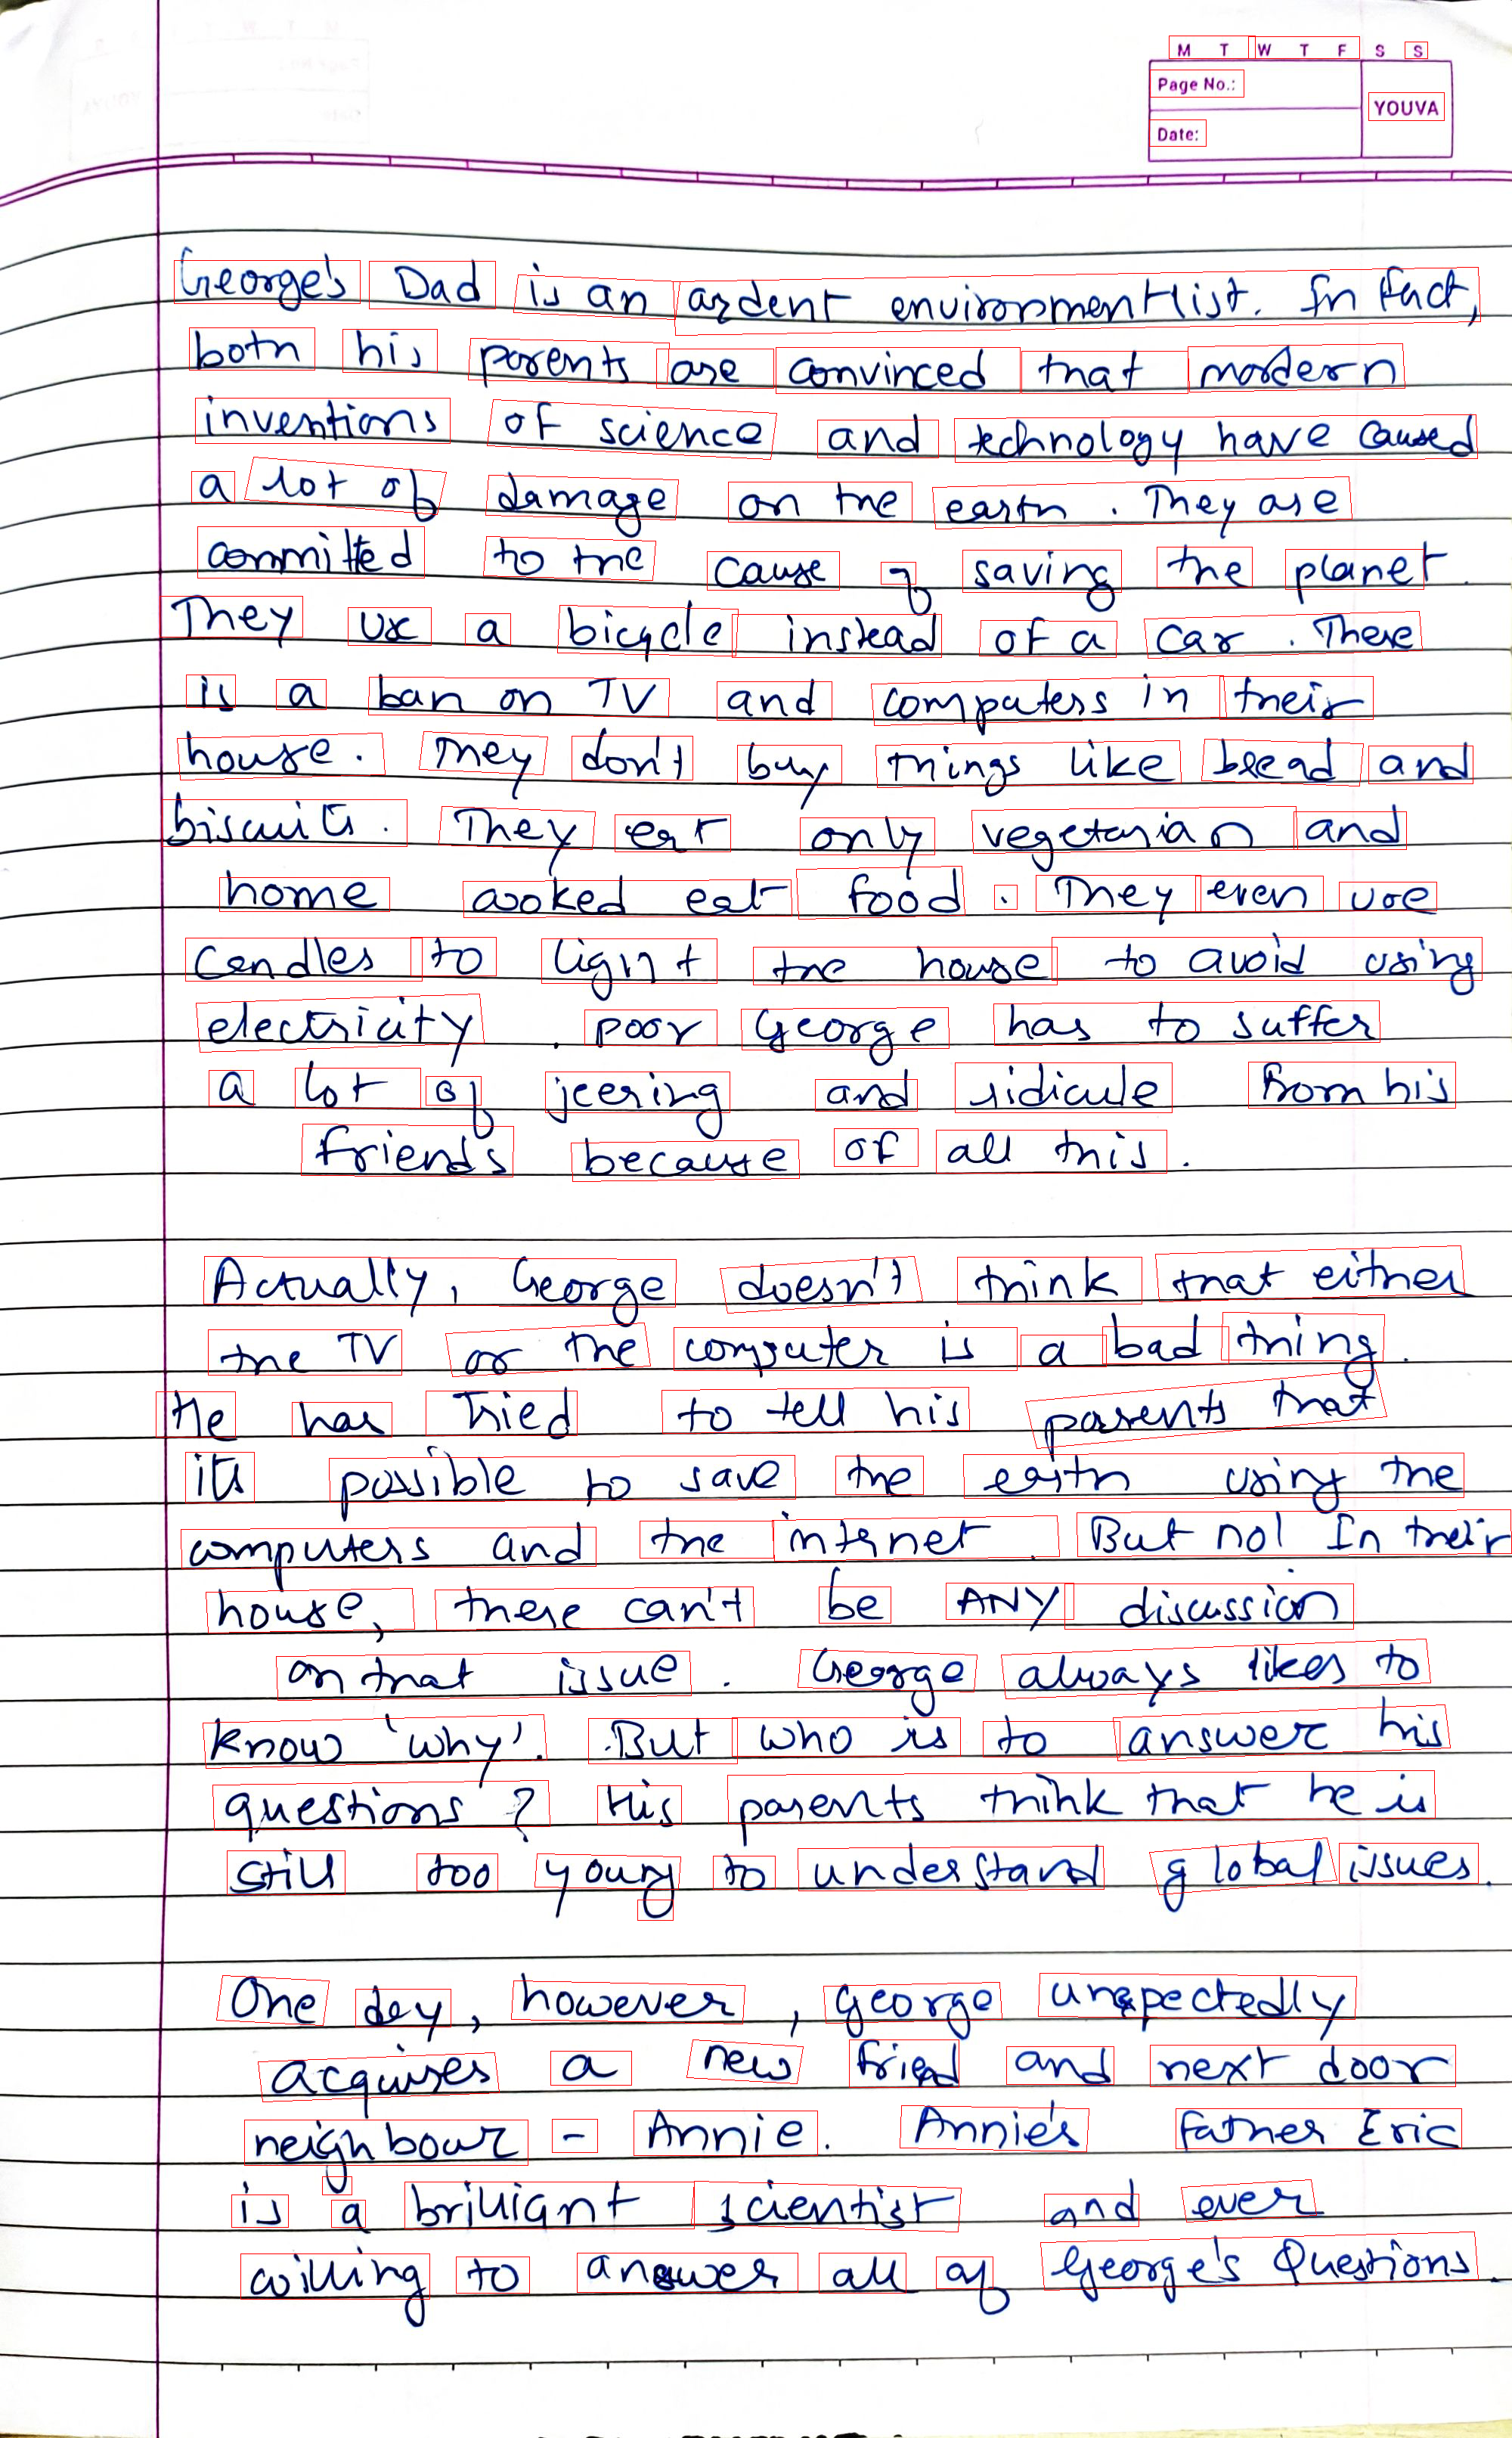 M T W T F S S
Page No.:
YOUVA
Date:
George's Dad is an ardent environmentlist. In fact,
both his parents are convinced that mordern
inventions of science and technology have caused
a lot of damage on the earth. They are
committed to the cause of saving the planet.
They use a bicycle instead of a car. There
is a ban on TV and computers in their
house. They don't buy things like bread and
biscuits. They eat only vegetarian and
home cooked eat food. They even use
candles to light the house to avoid using
electricity. poor George has to suffer
a lot of jeering and ridicule from his
friends because of all this.
Actually, George doesn't think that either
the TV or the computer is a bad thing.
He has Tried to tell his parents that
its possible to save the earth using the
computers and the internet. But not In their
house, there can't be ANY discussion
on that issue. George always likes to
know 'why'. But who is to answer his
questions? His parents think that he is
still too young to understand global issues.
One day, however, George unexpectedly
acquires a new friend and next door
neighbour - Annie. Annie's Father Eric
is a brilliant scientist and ever
willing to answer all of George's Questions.